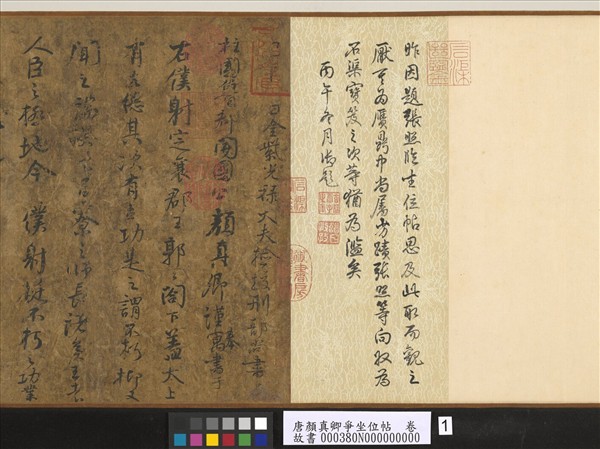 昨因題張照臨坐位帖思及此取而觀之
厥耳為贗鼎而尚屬旁蹟張照等向收為
石渠寶笈之次等猶為濫矣
丙午冬月御題
月金紫光祿大夫檢校刑部尚書
柱國魯郡開國公顏真卿謹奉寓書于
右僕射定襄郡王郭公閤下蓋太上
有立德其次有立功是之謂不朽抑又
聞之端揆者百寮之師長諸侯王者
人臣之極地今僕射挺不朽之功業
唐顏真卿爭坐位帖 卷
故書 000380N000000000
1